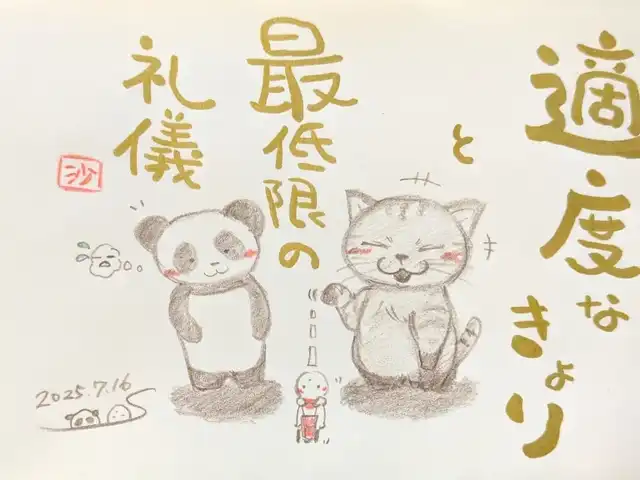 適度な
きょり
と
最低限の
礼儀
沙
2025.7.16